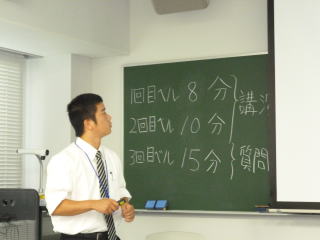 1回目ベル 8分
2回目ベル 10分
3回目ベル 15分
講
質問